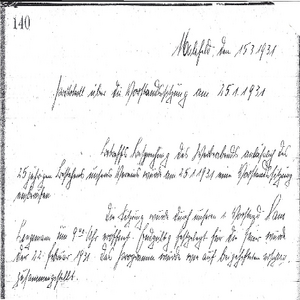 140
Melsfeld, den 15.3.1931
Protokoll über die Vorstandssitzung am 25.1.1931
Besprechung des Werbeabends anläßlich des
25 jährigen Bestehens unseres Vereins wurde am 25.1.1931 eine Vorstandssitzung
einberufen
Die Sitzung wurde durch unseren 1. Vorsitzd. Hans
um 9 Uhr eröffnet. festgelegt für die Feier wurde
der 22. Februar 1931. Das Programm wurde wie auf
zusammengestellt.